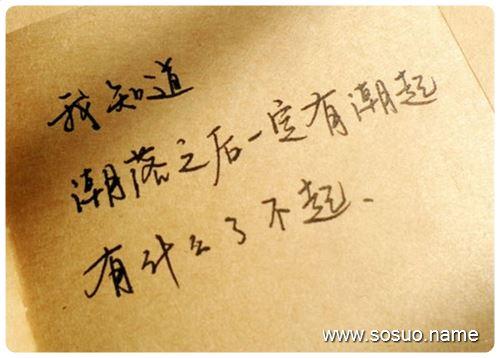 我知道
潮落之后一定有潮起
有什么了不起、
www.sosuo.name